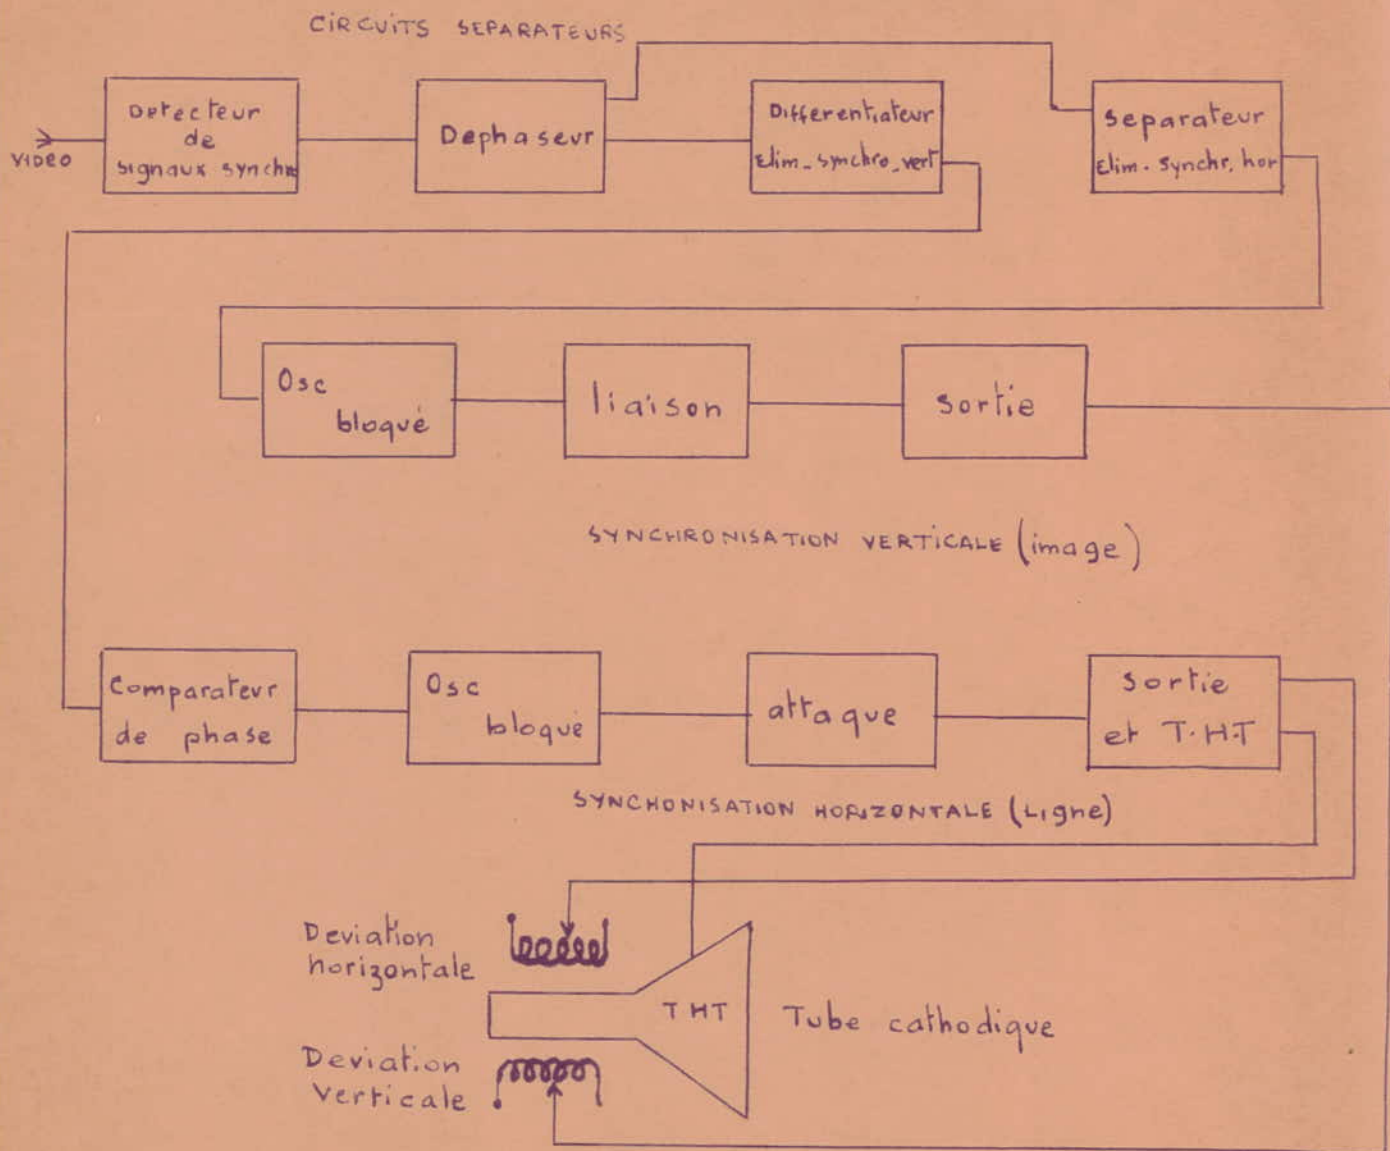 CIRCUITS SEPARATEURS
VIDEO
Detecteur
de
signaux synchro
Dephaseur
Differentiateur
Elim_synchro_vert
Separateur
Elim. Synchr. hor
Osc
bloqué
liaison
sortie
SYNCHRONISATION VERTICALE (image)
Comparateur
de phase
Osc
bloqué
attaque
sortie
et T.H.T
SYNCHONISATION HORIZONTALE (Ligne)
Deviation
horizontale
THT
Tube cathodique
Deviation
verticale